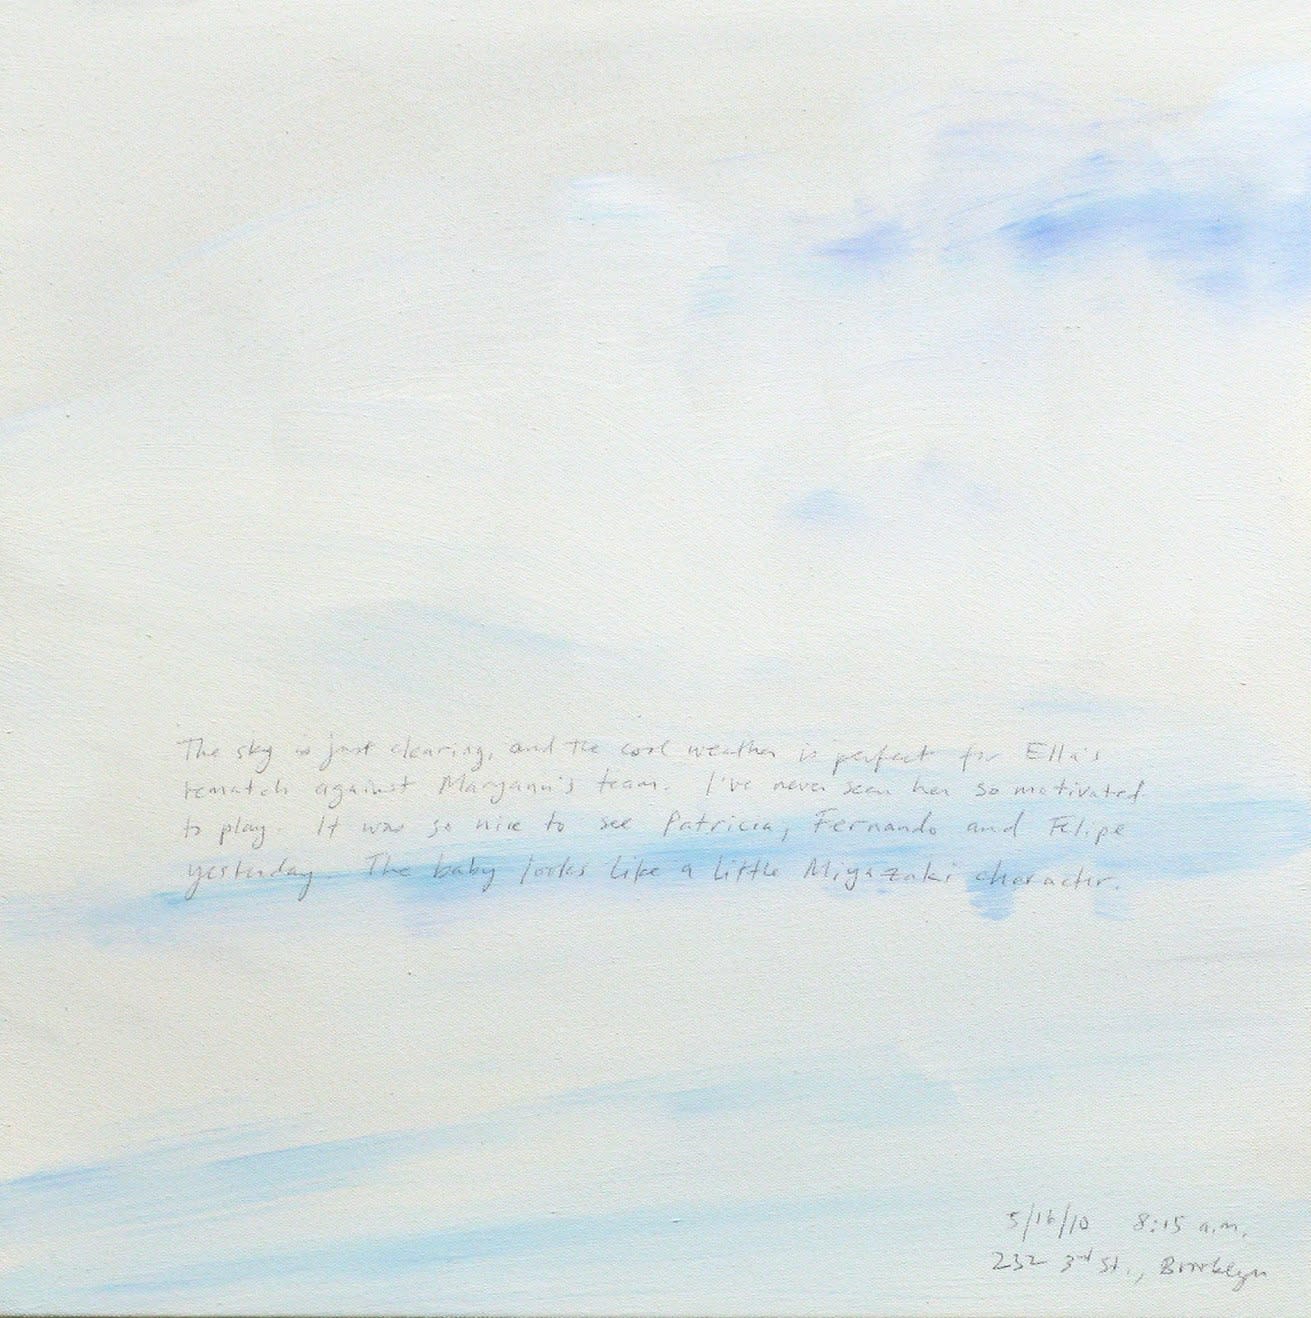 The sky is just clearing, and the cool weather is perfect for Ella's
rematch against Maryann's team. I've never seen her so motivated
to play. It was so nice to see Patricia, Fernando and Felipe
yesterday. The baby looks like a little Miyazaki character.
5/16/10 8:15 a.m.
232 3rd St., Brooklyn